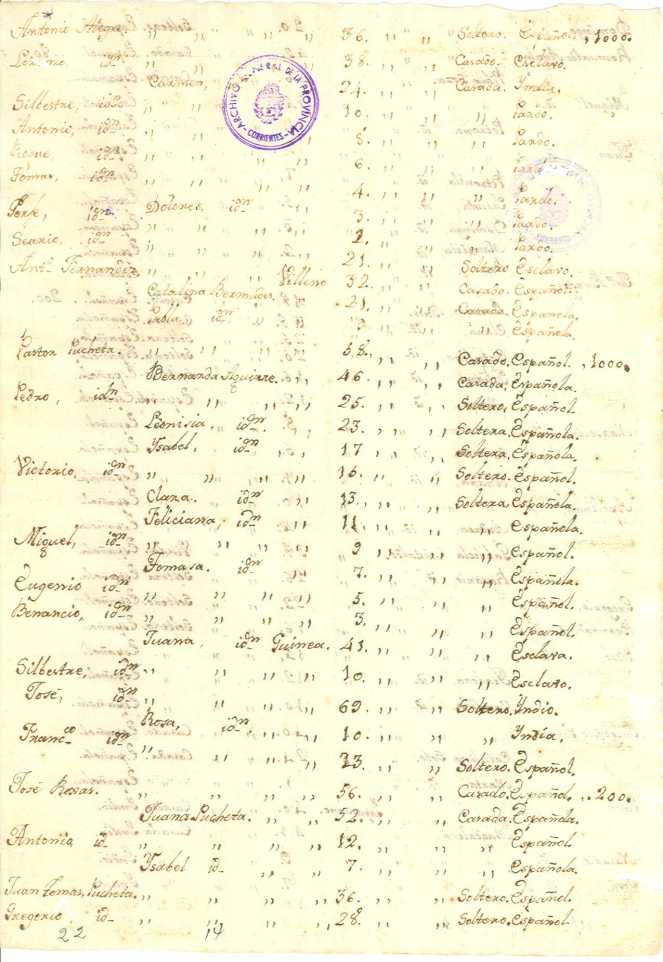 Antonio Alegre, " " 36. " " Soltero. Español. ,, 1000.
idm " " 38. " " Casado. Esclavo.
Carmen, " " 24. " " Casada. Yndia.
Silbestre, idm " " 10. " " Pardo.
Antonio, idm " " 8. " " Pardo.
Roque idm " " 6. " "
Tomas, idm " " 4. " " Pardo.
José, idm Dolores, idm " " 3. " " Pardo.
idm " " 2. " " Pardo.
Anto. Fernandez " " 21. " " Soltero Esclavo.
Catalina Bermudes. 32. " " Casado. Español.
idm " " 21. " " Casada. Española.
" " Española.
Pastor Lucheta. " " 58. " " Casado. Español. ,, 1000.
Bernarda " " 46 " " Casada. Española.
Pedro, idm " " 25. " " Soltero. Español.
Leonisia idm " " 23. " " Soltera. Española.
Ysabel. idm " " 17 " " Soltera. Española.
Victorio, idm " " 16. " " Soltero. Español.
Clara. idm " " 13. " " Soltera. Española.
Feliciana, idm " " 11. " " Española.
Miguel, idm " " 9 " " Español.
Tomasa. idm " " 7. " " Española.
Eugenio idm " " 5. " " Español.
Benancio, idm " " 3. " " Español.
Juana, idm Guinea. 41. " " Esclava.
Silbestre, idm " " 10. " " Esclavo.
José, idm " " 69. " " Soltero. Yndio.
Rosa, idm " " 10. " " Yndia.
Franco idm " " 13. " " Soltero. Español.
José Rosas. " " 56. " " Casado. Español. ,, 200.
Juana Lucheta. " " 52. " " Casada. Española.
Antonio id " " 12. " " Español.
Ysabel id " " 7. " " Española.
Juan Tomas, Lucheta. " " 36. " " Soltero. Español.
Gregorio. id " " 28. " " Soltero. Español.
22
ARCHIVO GENERAL DE LA PROVINCIA
CORRIENTES